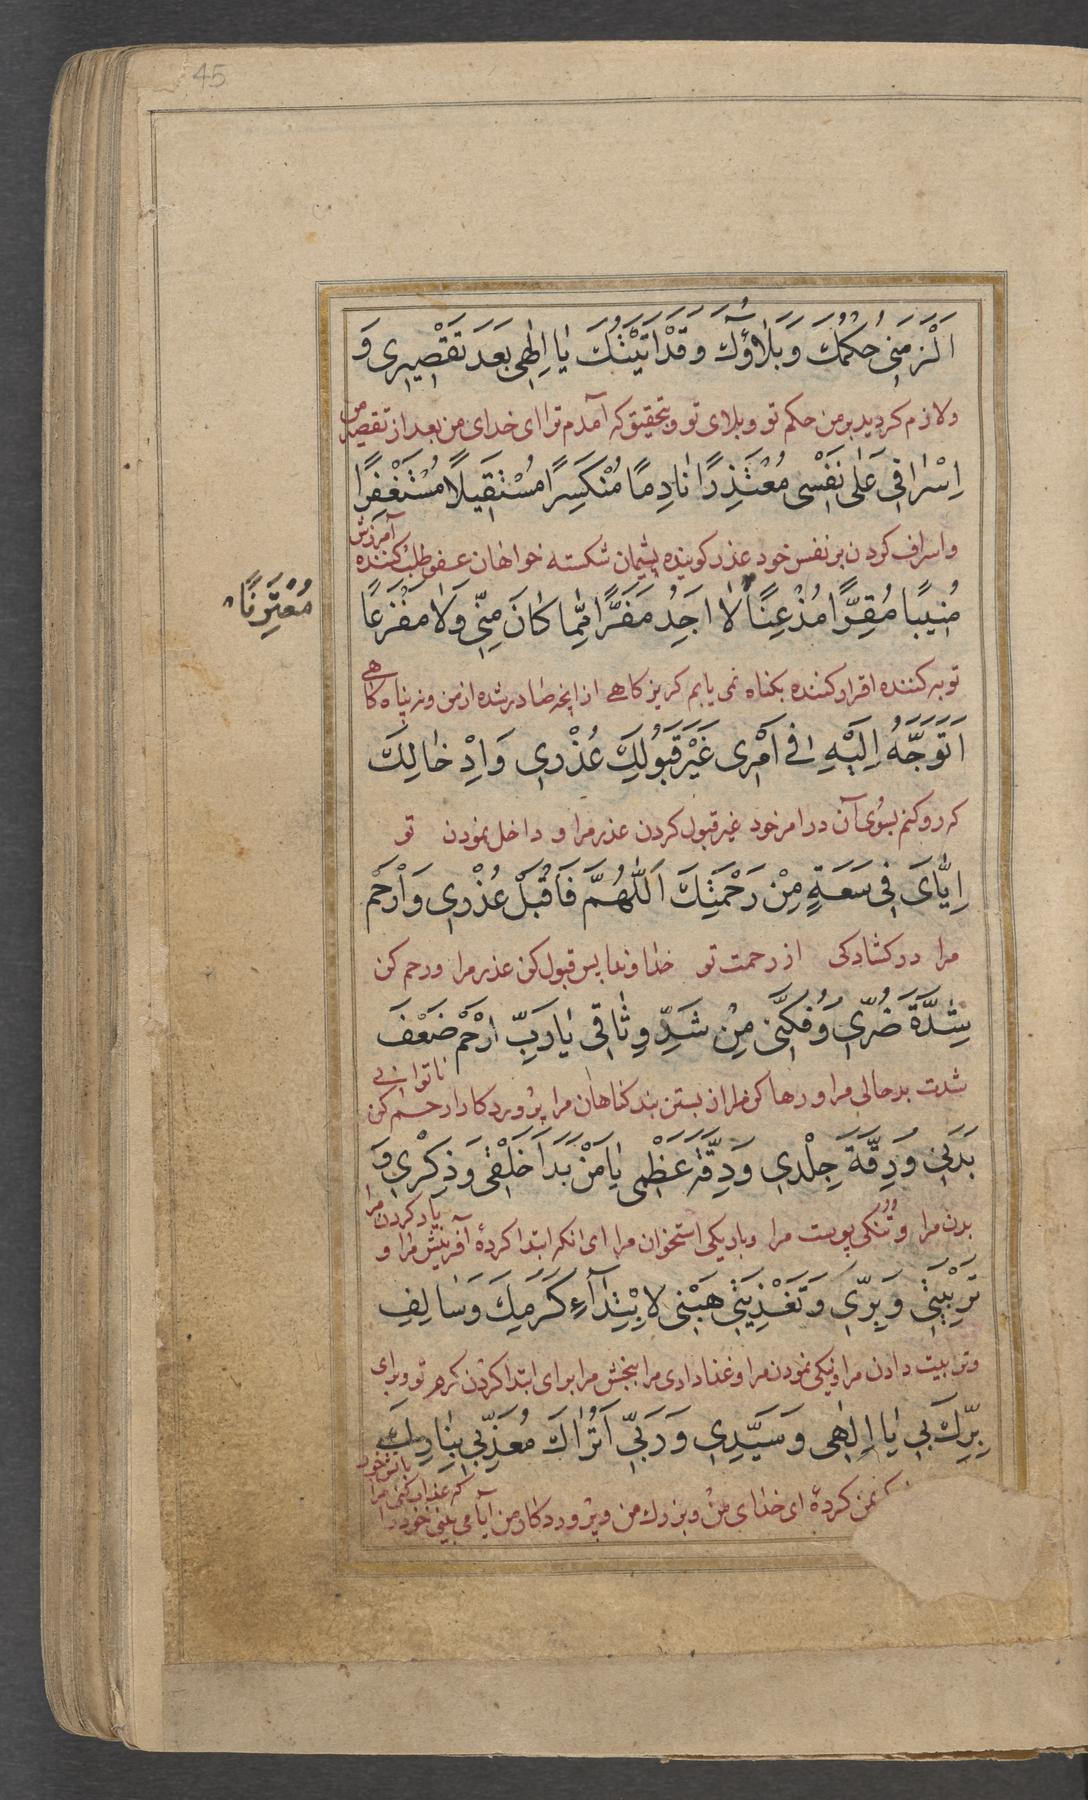 45
اَلْزَمَنِی حُكْمُكَ وَ بَلَاؤُكَ وَ قَدْ اَتَیْتُكَ یٰا اِلٰهِی بَعْدَ تَقْصِیرِی وَ
و لازم کردید بر من حکم تو و بلای تو و بتحقیق که آمدم ترا ای خدای من بعد از تقصیر من
اِسْرٰافِی عَلٰی نَفْسِی مُعْتَذِرًا نٰادِمًا مُنْكَسِرًا مُسْتَقِیلًا مُسْتَغْفِرًا
و اسراف کردن بر نفس خود عذر کوینده پشیمان شکسته خواهان عفو طلب کننده آمرزش
مُنِیبًا مُقِرًّا مُذْعِنًا لٰا اَجِدُ مَفَرًّا مِمّٰا كٰانَ مِنِّی وَلٰا مَفْزَعًا
مُعْتَرِفًا
توبه کننده اقرار کننده بکناه نمی یابم کریز کاهی از انچه صادر شده از من و نه پناه کاهی
اَتَوَجَّهُ اِلَیْهِ فِی اَمْرِی غَیْرَ قَبُولِكَ عُذْرِی وَ اِدْخٰالِكَ
که رو کنم بسوی آن در امر خود غیر قبول کردن عذر مرا و داخل نمودن تو
اِیّٰایَ فِی سَعَةٍ مِنْ رَحْمَتِكَ اَللّٰهُمَّ فَاقْبَلْ عُذْرِی وَارْحَمْ
مرا در کشادکی از رحمت تو خداوندا پس قبول کن عذر مرا و رحم کن
شِدَّةَ ضُرِّی وَ فُكَّنِی مِنْ شَدِّ وِثٰاقِی یٰا رَبِّ ارْحَمْ ضَعْفَ
شدت بد حالی مرا و رها کن مرا از بستن بند کناهان مرا پروردکارا رحم کن ناتوانی
بَدَنِی وَ رِقَّةَ جِلْدِی وَ دِقَّةَ عَظْمِی یٰا مَنْ بَدَاَ خَلْقِی وَ ذِكْرِی وَ
بدن مرا و تُنُکی پوست مرا و باریکی استخوان مرا ای انکه ابتدا کردهٔ آفرینش مرا و یاد کردن مرا
تَرْبِیَتِی وَ بِرِّی وَ تَغْذِیَتِی هَبْنِی لِابْتِدٰٓاءِ كَرَمِكَ وَ سٰالِفِ
و تربیت دادن مرا و نیکی نمودن مرا و غذا دادی مرا ببخش مرا برای ابتدا کردن کرم تو و برای
بِرِّكَ بِی یٰا اِلٰهِی وَ سَیِّدِی وَ رَبِّی اَتُرٰاكَ مُعَذِّبِی بِنٰارِكَ
بمن کردهٔ ای خدای من و بزرك من و پروردکار من آیا می بینی خود را که عذاب کنی مرا باتش خود